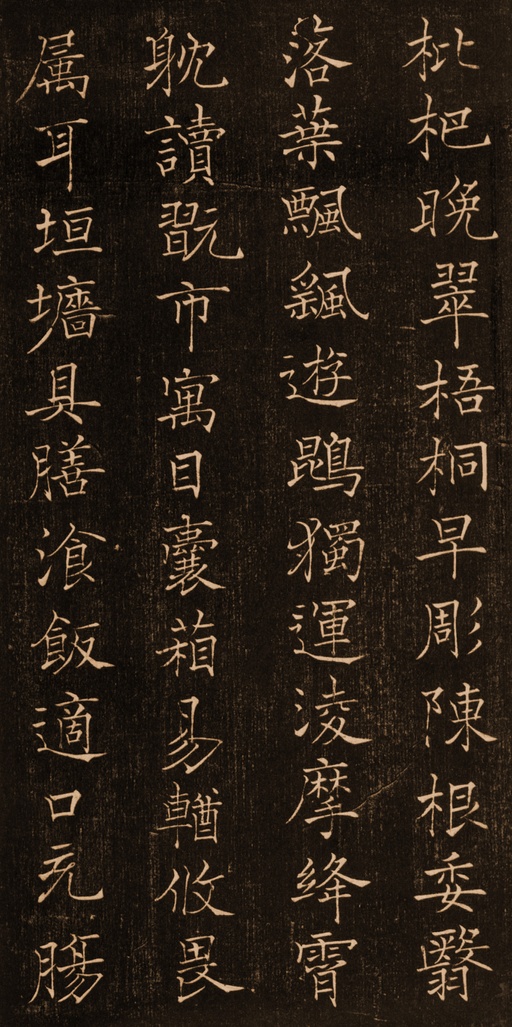 枇杷晚翠梧桐早彫陳根委翳
落葉飄颻遊鵾獨運淩摩絳霄
躭讀翫市寓目囊葙易輶攸畏
属耳垣墻具膳湌飯適口充膓